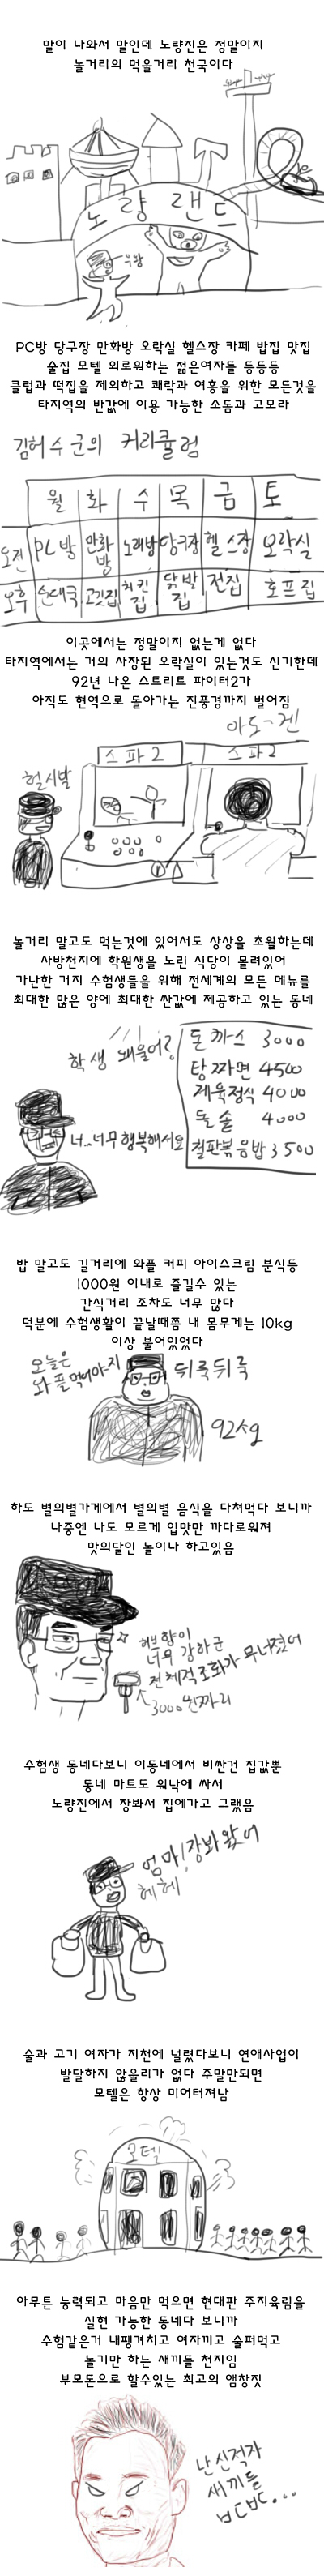 말이 나와서 말인데 노량진은 정말이지
놀거리의 먹을거리 천국이다
노량랜드
우왕
PC방 당구장 만화방 오락실 헬스장 카페 밥집 맛집
술집 모텔 외로워하는 젊은여자들 등등등
클럽과 떡집을 제외하고 쾌락과 여흥을 위한 모든것을
타지역의 반값에 이용 가능한 소돔과 고모라
김허수군의 커리큘럼
월 화 수 목 금 토
오전 PC방 만화방 노래방 당구장 헬스장 오락실
오후 순대국 고깃집 치킨집 닭발집 전집 호프집
이곳에서는 정말이지 없는게 없다
타지역에서는 거의 사장된 오락실이 있는것도 신기한데
92년 나온 스트리트 파이터2가
아직도 현역으로 돌아가는 진풍경까지 벌어짐
아도~겐
스파2
스파2
헐시발
놀거리 말고도 먹는것에 있어서도 상상을 초월하는데
사방천지에 학원생을 노린 식당이 몰려있어
가난한 거지 수험생들을 위해 전세계의 모든 메뉴를
최대한 많은 양에 최대한 싼값에 제공하고 있는 동네
학생 왜울어?
돈까스 3000
탕짜면 4500
제육정식 4000
돌솥 4000
철판볶음밥 3500
너..너무행복해서요
밥 말고도 길거리에 와플 커피 아이스크림 분식등
1000원 이내로 즐길수 있는
간식거리 조차도 너무 많다
덕분에 수험생활이 끝날때쯤 내 몸무게는 10kg
이상 불어있었다
오늘은
와플먹어야지
뒤룩뒤룩
92kg
하도 별의별가게에서 별의별 음식을 다쳐먹다 보니까
나중엔 나도 모르게 입맛만 까다로워져
맛의달인 놀이나 하고있음
허브향이
너무 강하군
전체적조화가 무너졌어
3000원짜리
수험생 동네다보니 이동네에서 비싼건 집값뿐
동네 마트도 워낙에 싸서
노량진에서 장봐서 집에가고 그랬음
엄마!장봐왔어
헤헤
술과 고기 여자가 지천에 널렸다보니 연애사업이
발달하지 않을리가 없다 주말만되면
모텔은 항상 미어터져남
모텔
아무튼 능력되고 마음만 먹으면 현대판 주지육림을
실현 가능한 동네다 보니까
수험같은거 내팽겨치고 여자끼고 술퍼먹고
놀기만 하는 새끼들 천지임
부모돈으로 할수있는 최고의 앰창짓
난신적자
새끼들
ㅂㄷㅂㄷ...